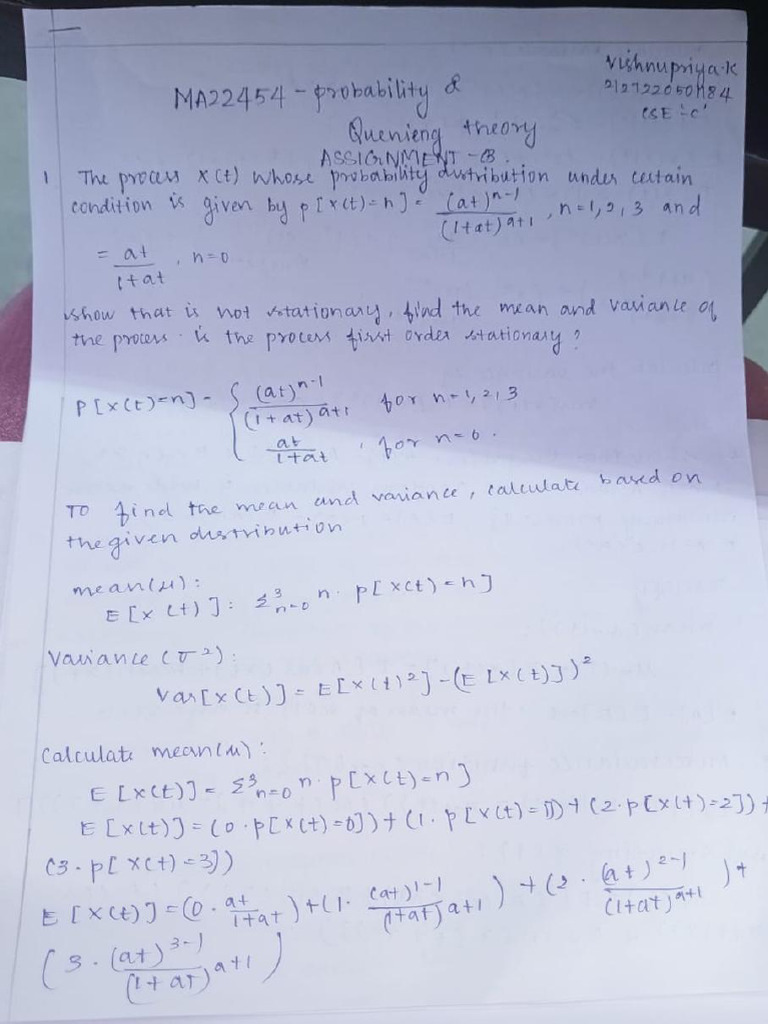 MA22454 - probability &
Vishnupriya.K
212722050184
CSE 'C'
Quenieng theory
ASSIGNMENT - B.
1 The process x(t) whose probability distribution under certain
condition is given by p[x(t)=n] = (at)^n-1 / (1+at)^a+1 , n=1,2,3 and
= at / 1+at , n=0
show that is not stationary, find the mean and variance of
the process. is the process first order stationary?
P[x(t)=n] = { (at)^n-1 / (1+at)^a+1 for n=1,2,3
at / 1+at , for n=0.
TO find the mean and variance, calculate based on
the given distribution
mean(μ):
E[x(t)]: Σ^3 n=0 n. p[x(t)=n]
Variance (σ²):
Var[x(t)] = E[x(t)²] - (E[x(t)])²
Calculate mean(μ):
E[x(t)] = Σ^3 n=0 n. p[x(t)=n]
E[x(t)] = (0.p[x(t)=0]) + (1. p[x(t)=1]) + (2.p[x(t)=2]) +
(3.p[x(t)=3])
E[x(t)] = (0. at / 1+at) + (1. (at)^1-1 / (1+at)^a+1) + (2. (at)^2-1 / (1+at)^a+1) +
(3. (at)^3-1 / (1+at)^a+1)